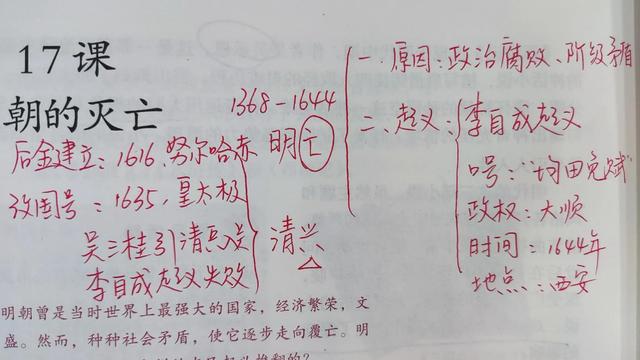 17 课
朝的灭亡
1368-1644
明亡
一、原因:政治腐败、阶级矛盾
二、起义:李自成起义
口号:均田免赋
政权:大顺
时间:1644年
地点:西安
后金建立:1616.努尔哈赤
改国号:1635.皇太极
吴三桂引清兵入关
李自成起义失败
清兴
明朝曾是当时世界上最强大的国家,经济繁荣,文
盛。然而,种种社会矛盾,使它逐步走向覆亡。明